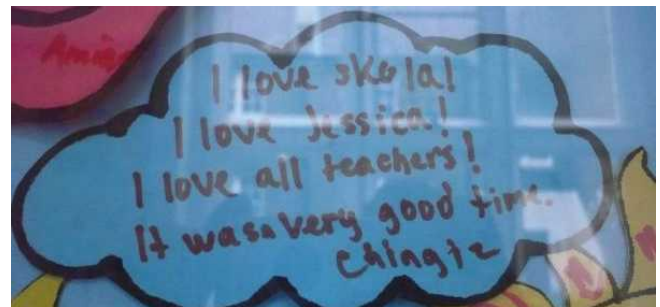 Amina
I love skola!
I love Jessica!
I love all teachers!
It was a very good time.
Chingiz